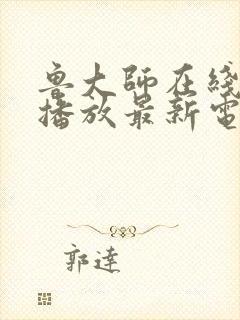 魯大師在綫
播放最新電
郭達